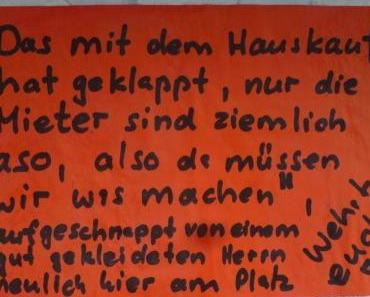 Das mit dem Hauskauf
hat geklappt, nur die
Mieter sind ziemlich
aso, also da müssen
wir was machen",
aufgeschnappt von einem
gut gekleideten Herrn
neulich hier am Platz
Wehrt
euch